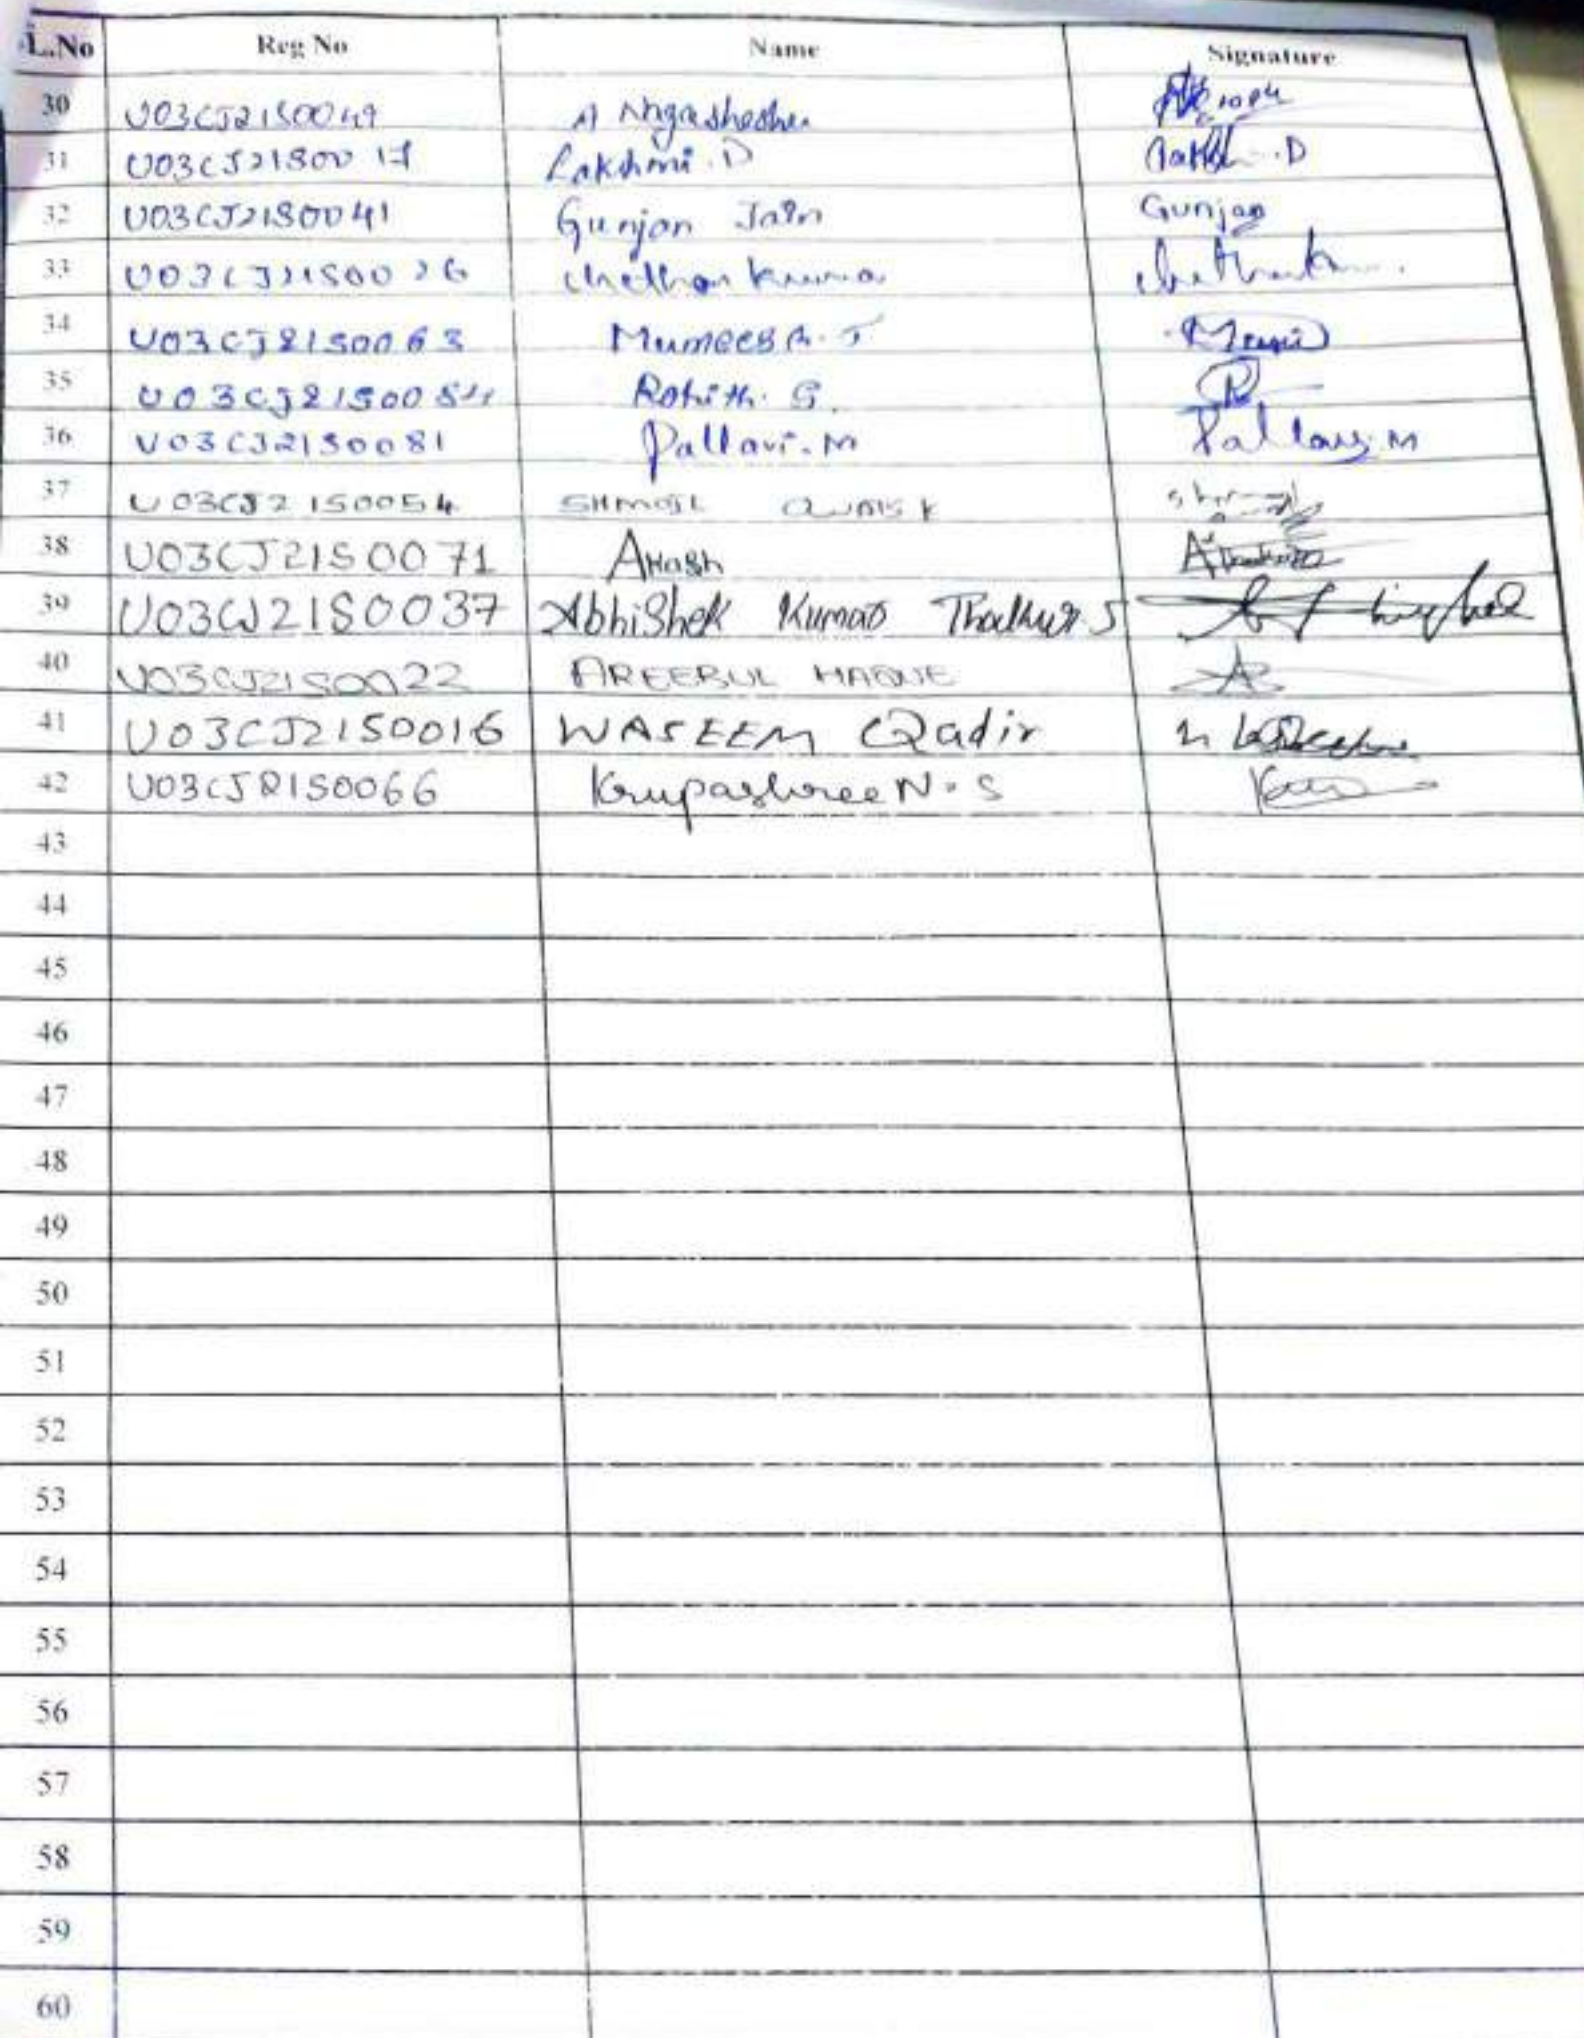 L.No Reg No Name Signature
30 U03CJ21S0049 A Nagashesha
31 U03CJ21S0017 Lakshmi.D .D
32 U03CJ21S0041 Gunjan Jain Gunjan
33 U03CJ21S0026 Chethan Kumar
34 U03CJ21S0063
35 U03CJ21S0084 Rohith. G.
36 U03CJ21S0081 Pallavi.M Pallavi.M
37 U03CJ21S0054
38 U03CJ21S0071 Akash
39 U03CJ21S0037 Abhishek Kumar Thakur S
40 U03CJ21S0022 AREEBUL HAQUE
41 U03CJ21S0016 WASEEM Qadir
42 U03CJ21S0066 Krupashree N.S
43
44
45
46
47
48
49
50
51
52
53
54
55
56
57
58
59
60